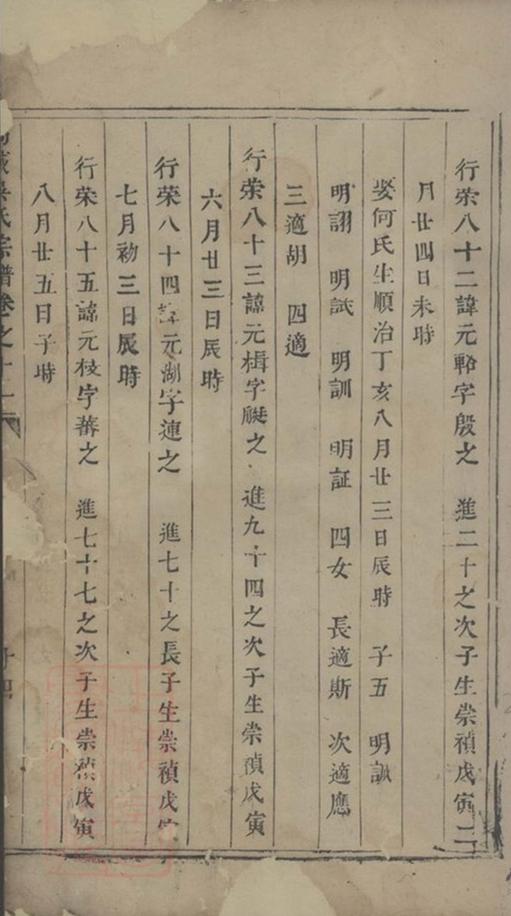 行荣八十二諱元輅字殷之 進二十之次子生崇禎戊寅二
月廿四日未時
娶何氏生順治丁亥八月廿三日辰時 子五 明誠
明詡 明試 明訓 明証 四女 長適斯 次適應
三適胡 四適
行荣八十三諱元楫字艇之 進九十四之次子生崇禎戊寅
六月廿三日辰時
行荣八十四諱元湖字連之 進七十之長子生崇禎戊寅
七月初三日辰時
行荣八十五諱元枝字蕃之 進七十七之次子生崇禎戊寅
八月廿五日子時
氏宗譜卷之十 十四